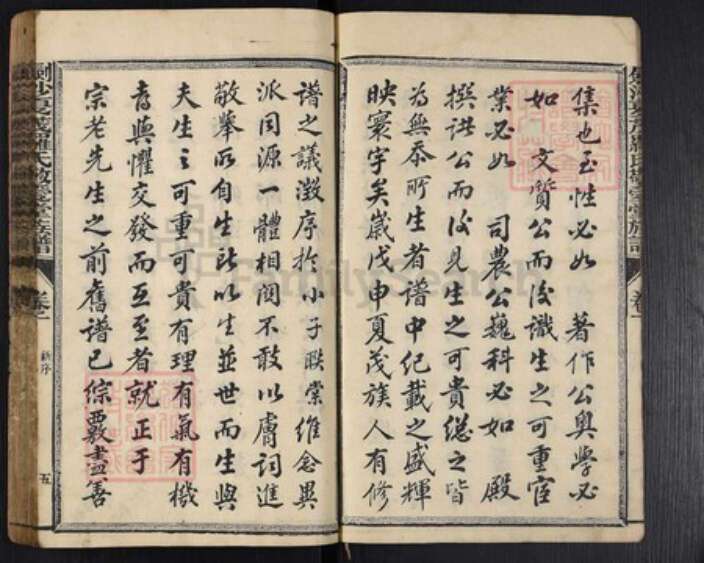 集也至性必如 著作公奧學必
如 文質公而後識生之可重宦
業必如 司農公巍科必如 殿
撰洪公而後見生之可貴總之皆
為無忝所生者譜中紀載之盛輝
映寰宇矣歲戊申夏茂族人有修
譜之議徵序於小子聯棠維念異
派同源一體相關不敢以膚詞進
敬舉所自生所以生並世而生與
夫生之可重可貴有理有氣有機
喜與懼交發而互至者就正于
宗老先生之前舊譜已綜覈盡善
卷一
新序
五
卷一
FamilySearch